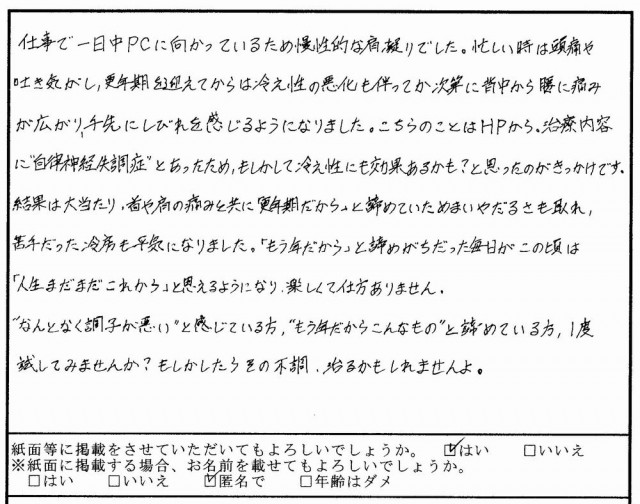 仕事で一日中PCに向かっているため慢性的な肩凝りでした。忙しい時は頭痛や
吐き気がし、更年期を迎えてからは冷え性の悪化も伴ってか次第に背中から腰に痛み
が広がり、手先にしびれを感じるようになりました。こちらのことはHPから。治療内容
に"自律神経失調症"とあったため、もしかして冷え性にも効果あるかも?と思ったのがきっかけです。
結果は大当たり、首や肩の痛みと共に「更年期だから」と諦めていためまいやだるさも取れ、
苦手だった冷房も平気になりました。「もう年だから」と諦めがちだった毎日がこの頃は
「人生まだまだこれから」と思えるようになり、楽しくて仕方ありません。
"なんとなく調子が悪い"と感じている方、"もう年だからこんなもの"と諦めている方、1度
試してみませんか?もしかしたらその不調、治るかもしれませんよ。
紙面等に掲載をさせていただいてもよろしいでしょうか。 ☑はい □いいえ
※紙面に掲載する場合、お名前を載せてもよろしいでしょうか。
□はい □いいえ ☑匿名で □年齢はダメ